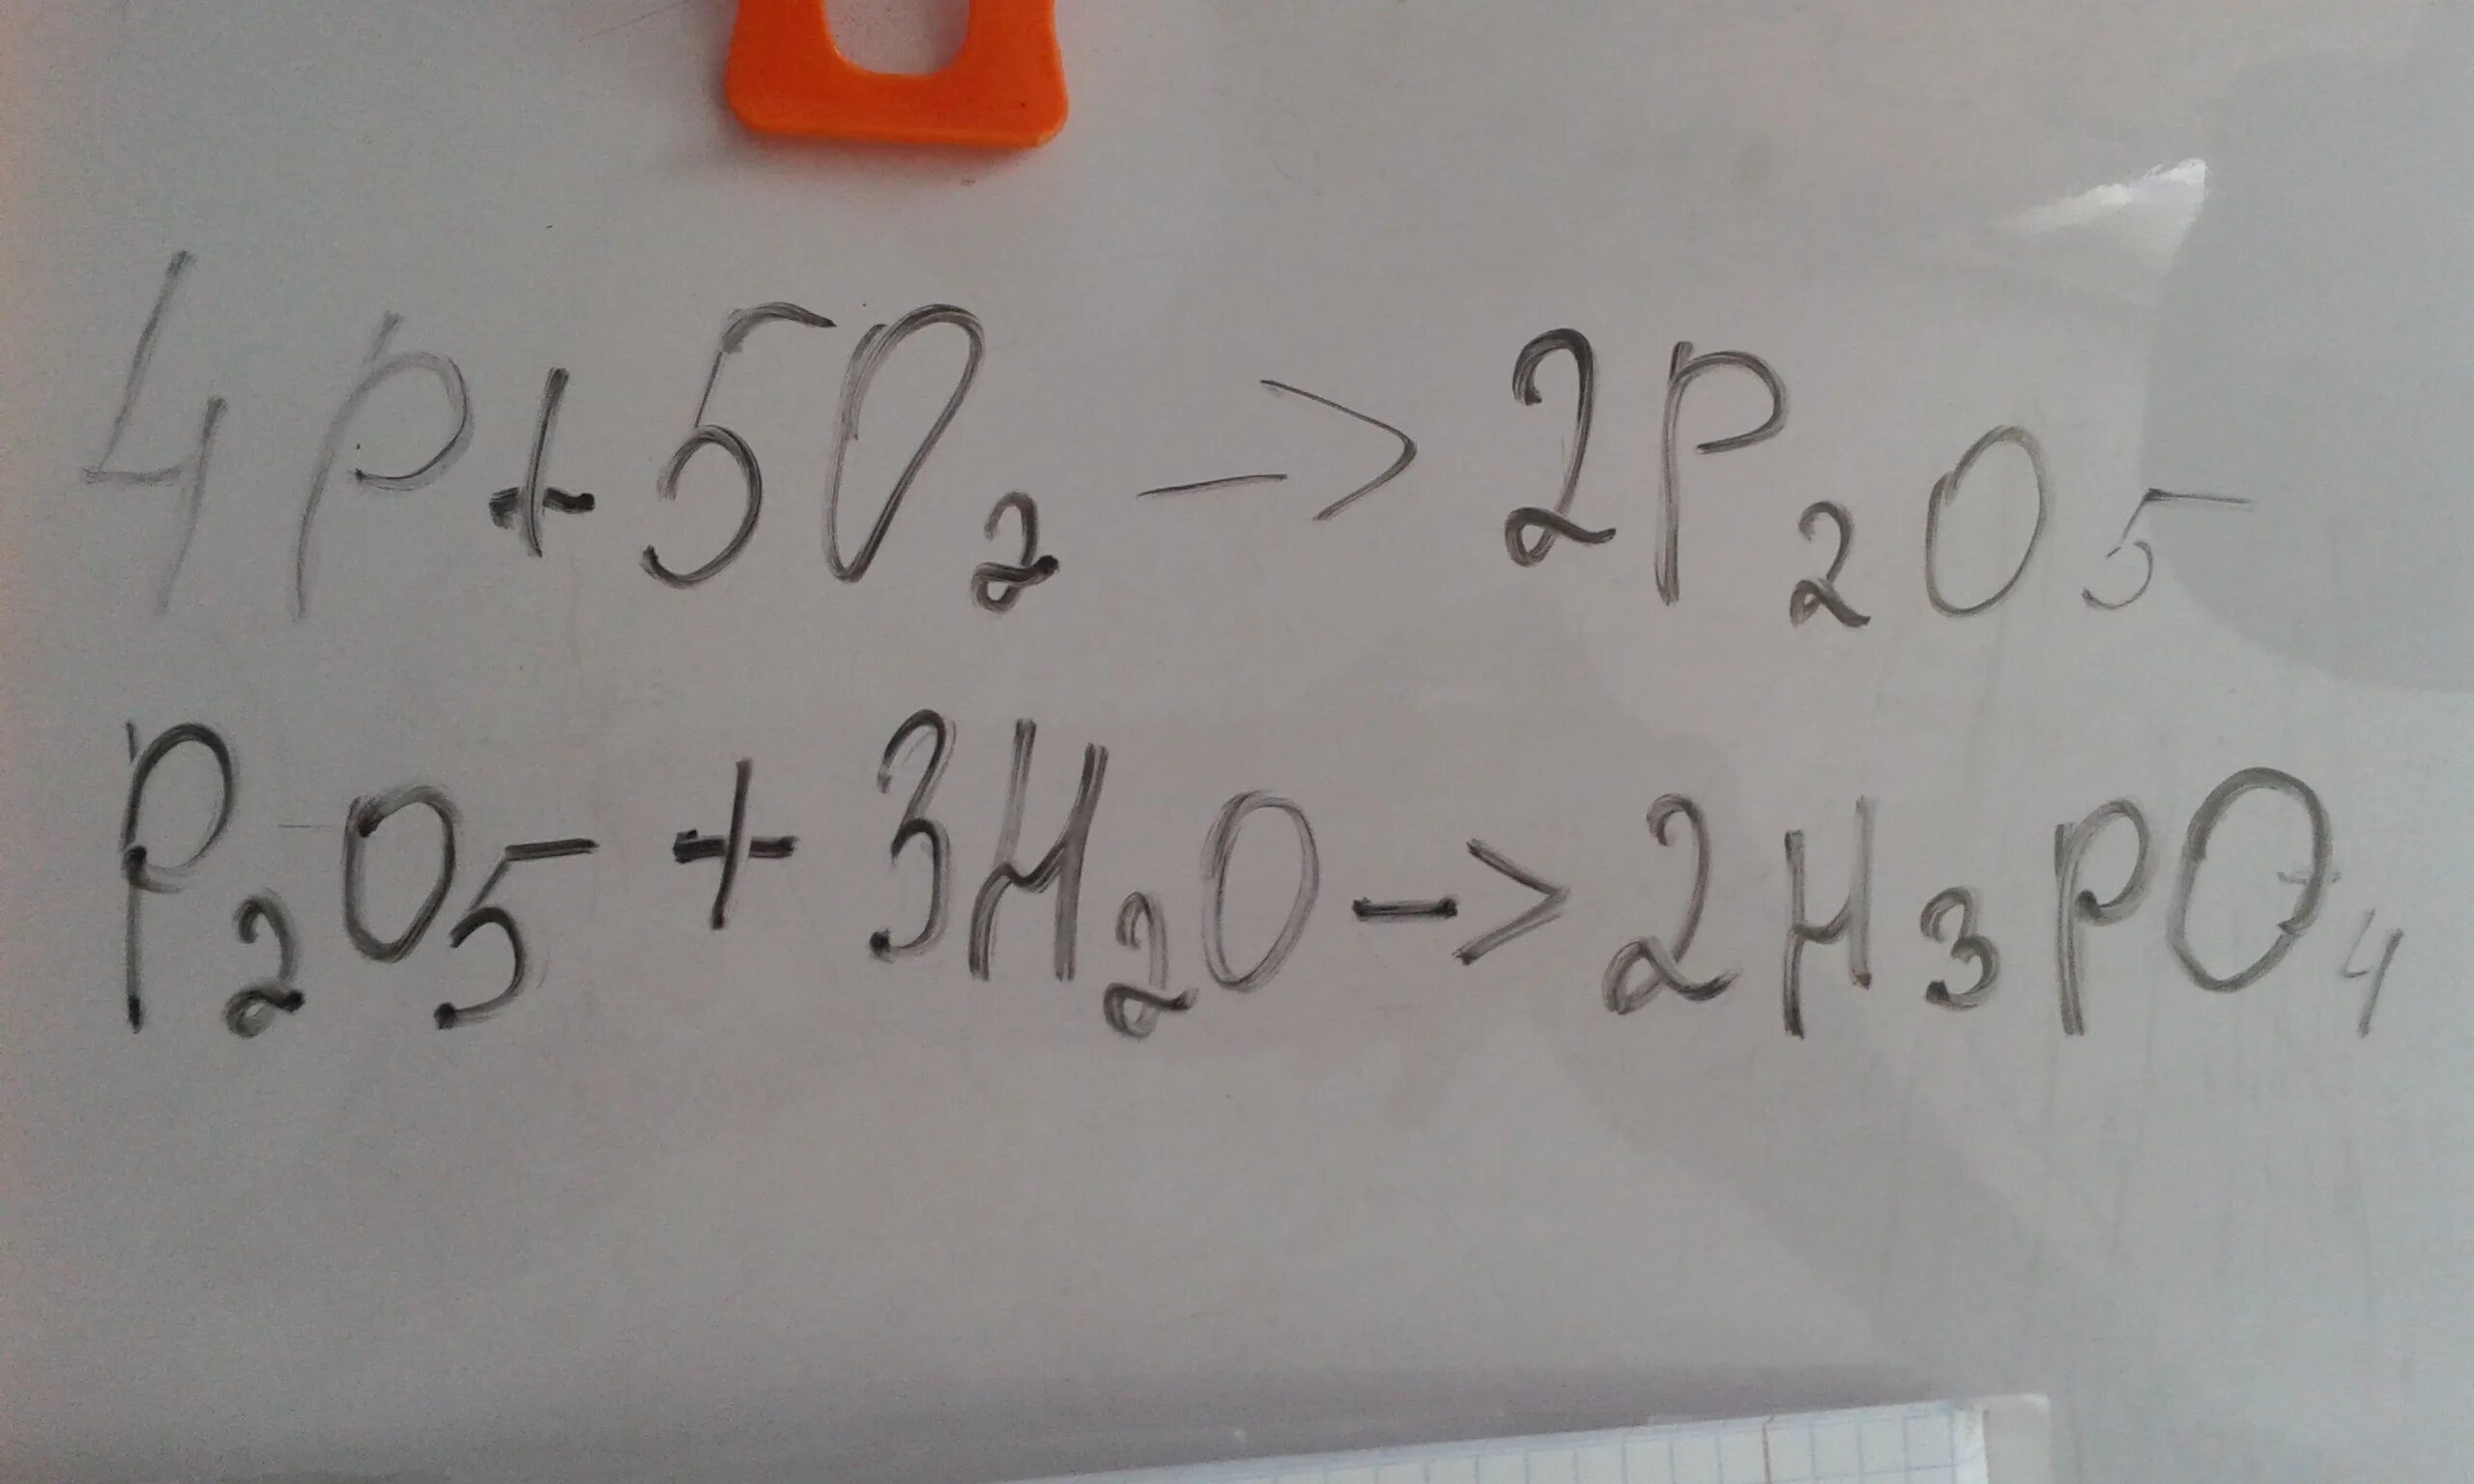 4P+5O₂->2P₂O₅
P₂O₅+3H₂O->2H₃PO₄